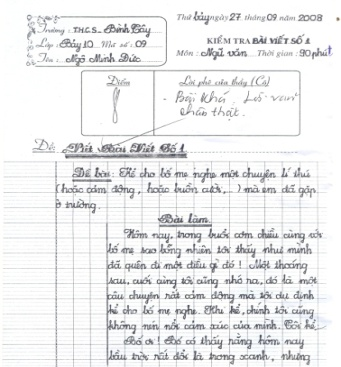 Trường: T.H.C.S. Bình Tây
Lớp: Bảy 10 Mã số: 09
Tên: Ngô Minh Đức
Thứ bảy ngày 27 tháng 09 năm 2008
KIỂM TRA BÀI VIẾT SỐ 1
Môn: Ngữ văn Thời gian: 90 phút
Điểm
Lời phê của thầy (Cô)
8
- Bài Khá, Lời văn
chân thật.
Đề: Viết Bài Viết Số 1
Đề bài: Kể cho bố mẹ nghe một chuyện lí thú
(hoặc cảm động, hoặc buồn cười,...) mà em đã gặp
ở trường.
Bài làm
Hôm nay, trong buổi cơm chiều cùng với
bố mẹ sao bỗng nhiên tôi thấy như mình
đã quên đi một điều gì đó! Một thoáng
sau, cuối cùng tôi cũng nhớ ra, đó là một
câu chuyện rất cảm động mà tôi dự định
kể cho bố mẹ nghe. Khi kể, chính tôi cũng
không nén nổi cảm xúc của mình. Tôi kể:
Bố ơi! Bố có thấy rằng hôm nay
bầu trời rất đỗi là trong xanh, nhưng